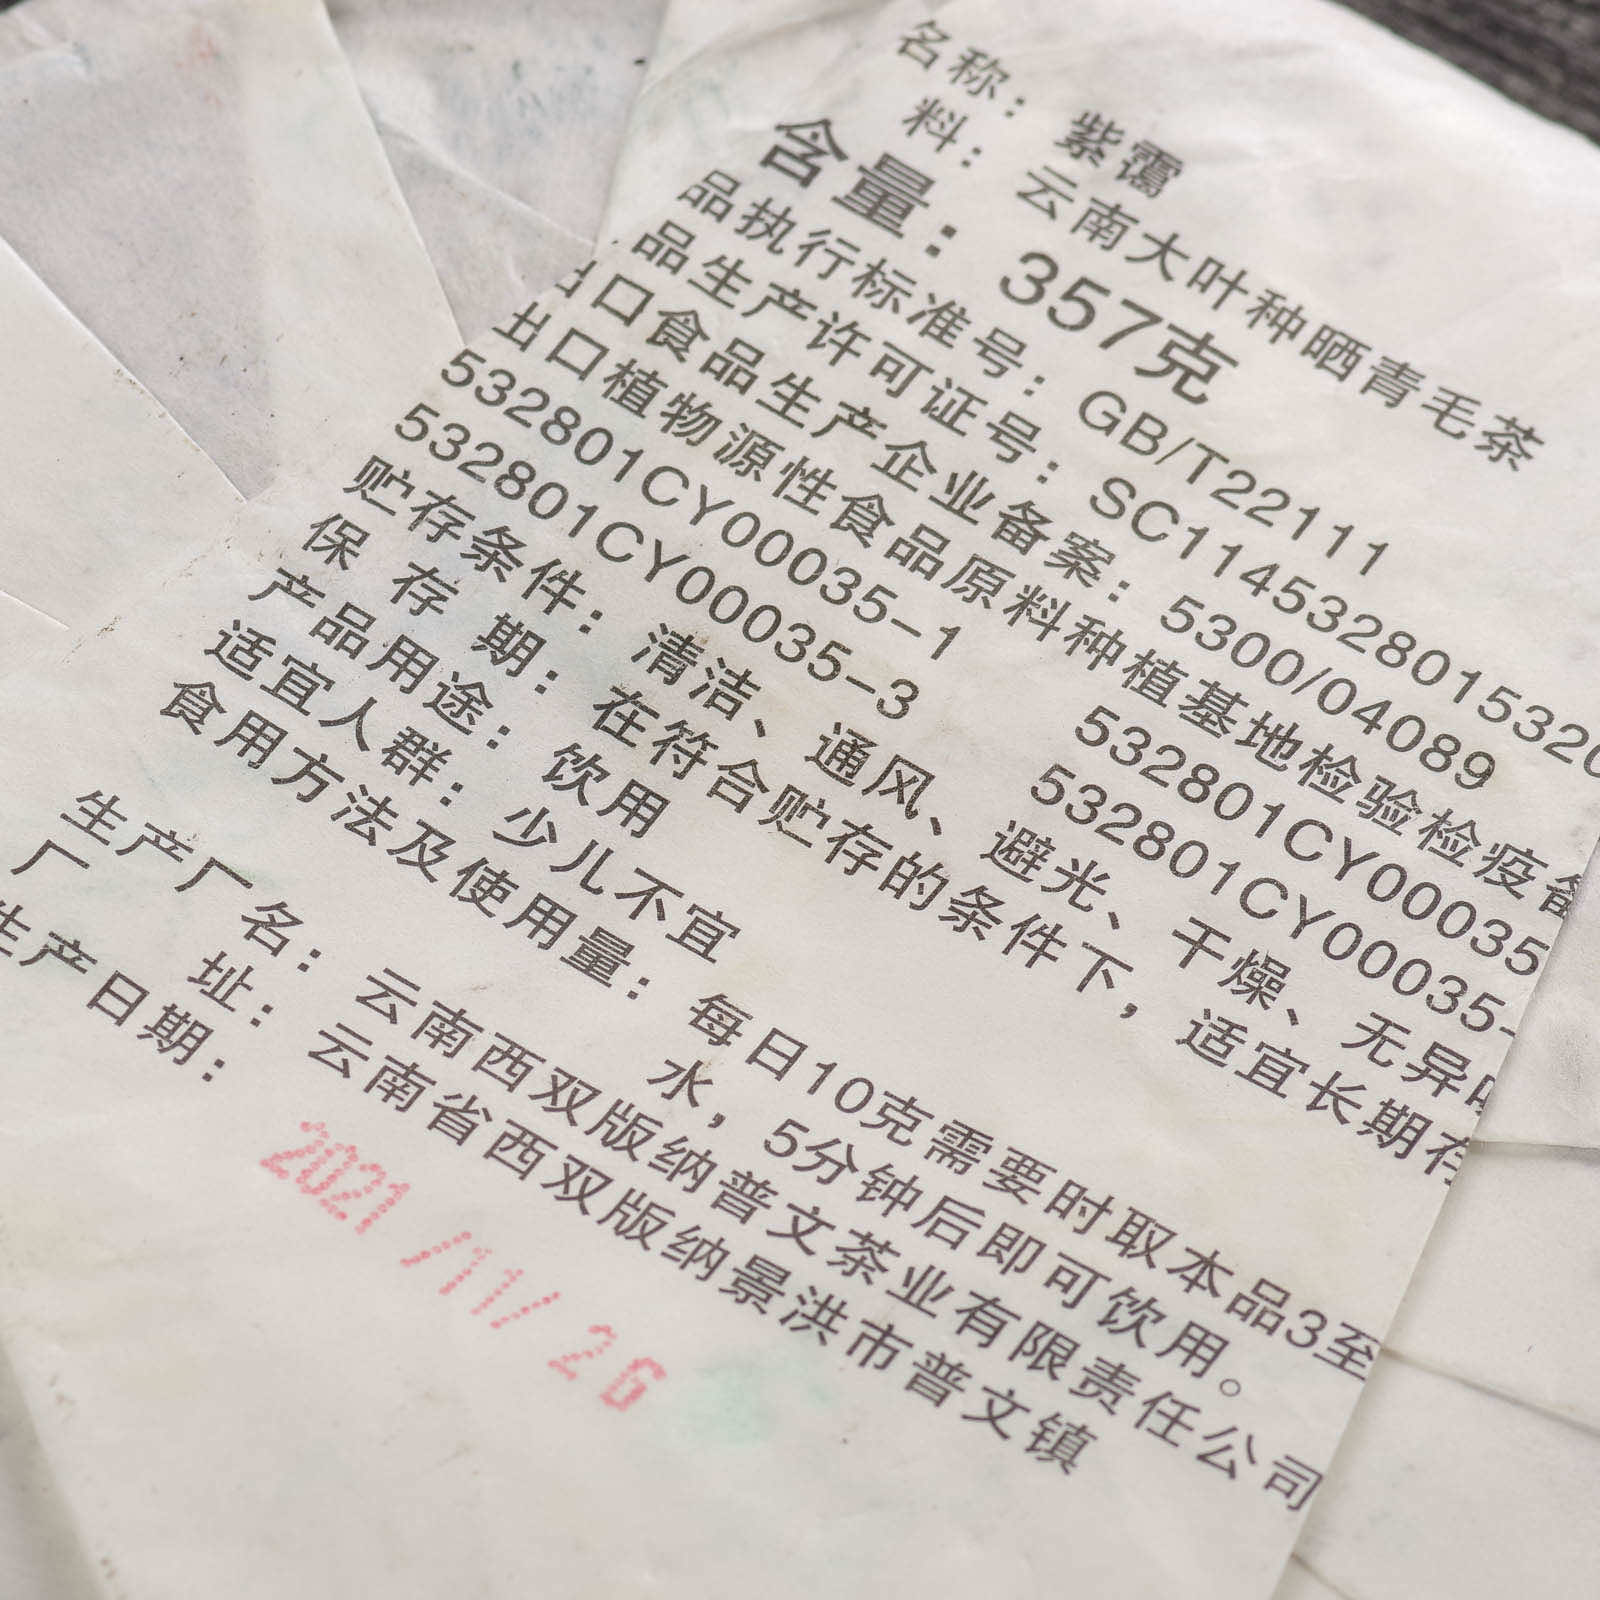 名称：紫霭
料：云南大叶种晒青毛茶
含量：357克
品执行标准号：GB/T22111
品生产许可证号：SC1145328015320
出口食品生产企业备案：5300/04089
出口植物源性食品原料种植基地检验检疫备
532801CY00035-1 532801CY00035
532801CY00035-3 532801CY00035-
贮存条件：清洁、通风、避光、干燥、无异
保存期：在符合贮存的条件下，适宜长期存
产品用途：饮用
适宜人群：少儿不宜
食用方法及使用量：每日10克需要时取本品3至
水，5分钟后即可饮用。
生产厂名：云南西双版纳普文茶业有限责任公司
厂址：云南省西双版纳景洪市普文镇
生产日期：
2021/11/26